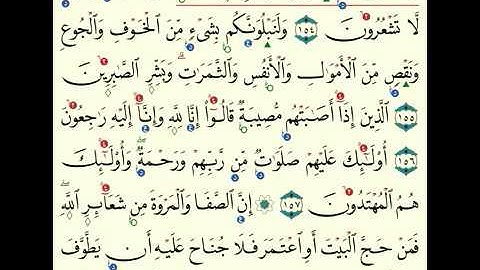 لَّا تَشْعُرُونَ ١٥٤ وَلَنَبْلُوَنَّكُم بِشَىْءٍ مِّنَ ٱلْخَوْفِ وَٱلْجُوعِ
وَنَقْصٍ مِّنَ ٱلْأَمْوَٰلِ وَٱلْأَنفُسِ وَٱلثَّمَرَٰتِ ۗ وَبَشِّرِ ٱلصَّٰبِرِينَ
١٥٥ ٱلَّذِينَ إِذَآ أَصَٰبَتْهُم مُّصِيبَةٌ قَالُوٓا۟ إِنَّا لِلَّهِ وَإِنَّآ إِلَيْهِ رَٰجِعُونَ
١٥٦ أُو۟لَٰٓئِكَ عَلَيْهِمْ صَلَوَٰتٌ مِّن رَّبِّهِمْ وَرَحْمَةٌ ۖ وَأُو۟لَٰٓئِكَ
هُمُ ٱلْمُهْتَدُونَ ١٥٧ ۞ إِنَّ ٱلصَّفَا وَٱلْمَرْوَةَ مِن شَعَآئِرِ ٱللَّهِ ۖ
فَمَنْ حَجَّ ٱلْبَيْتَ أَوِ ٱعْتَمَرَ فَلَا جُنَاحَ عَلَيْهِ أَن يَطَّوَّفَ